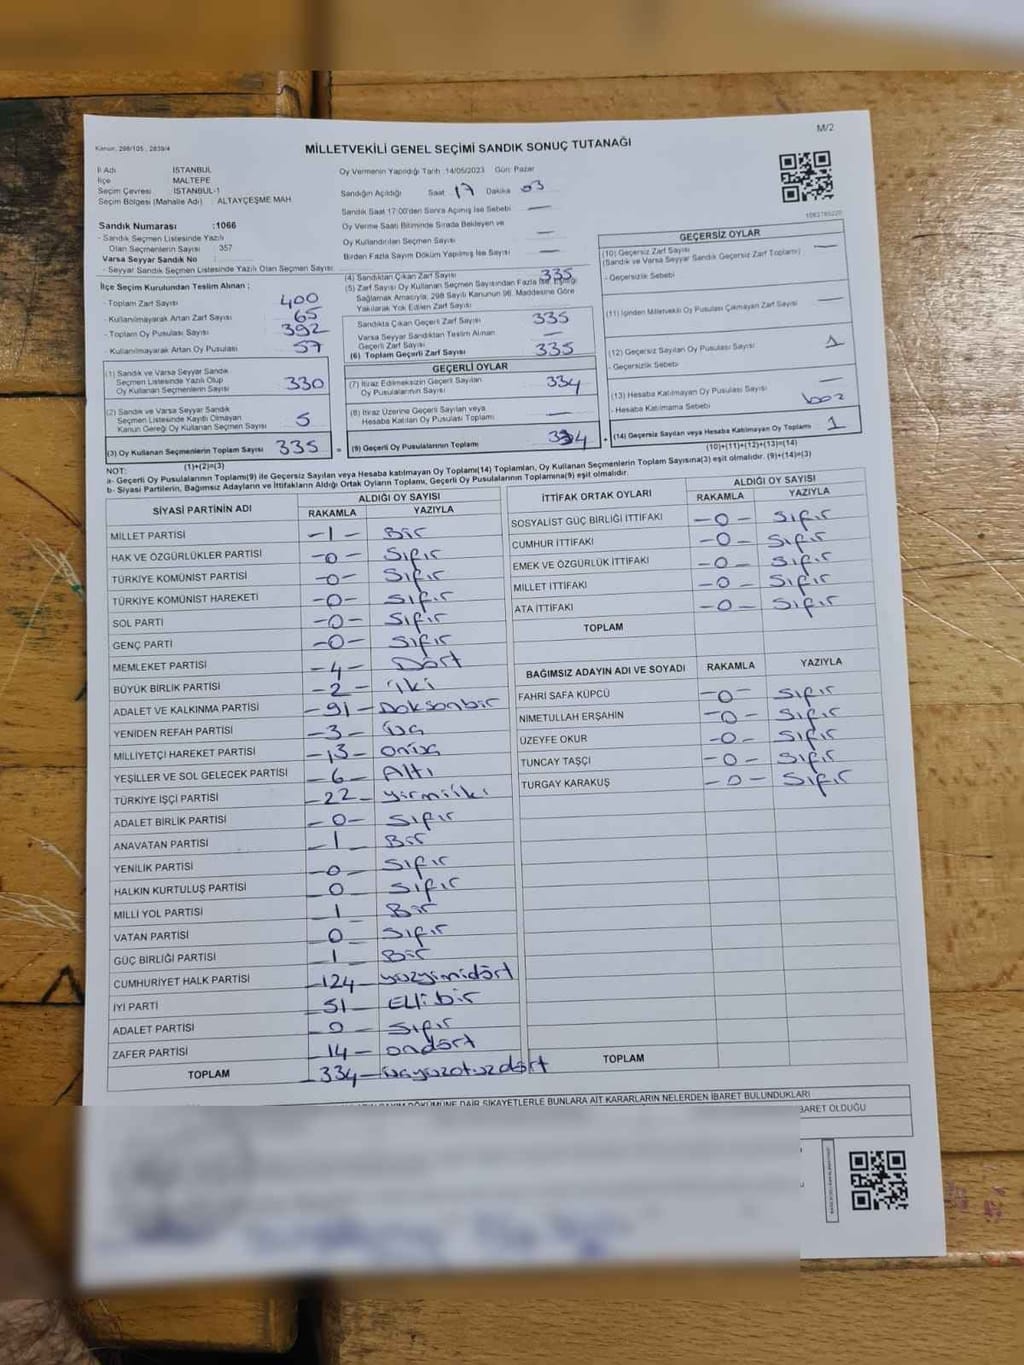 M/2
Kanun: 298/105 , 2839/4
MİLLETVEKİLİ GENEL SEÇİMİ SANDIK SONUÇ TUTANAĞI
İl Adı İSTANBUL
İlçe MALTEPE
Seçim Çevresi İSTANBUL-1
Seçim Bölgesi (Mahalle Adı) : ALTAYÇEŞME MAH.
Sandık Numarası :1066
- Sandık Seçmen Listesinde Yazılı
Olan Seçmenlerin Sayısı 357
Varsa Seyyar Sandık No
- Seyyar Sandık Seçmen Listesinde Yazılı Olan Seçmen Sayısı
İlçe Seçim Kurulundan Teslim Alınan ;
- Toplam Zarf Sayısı 400
- Kullanılmayarak Artan Zarf Sayısı 65
- Toplam Oy Pusulası Sayısı 392
- Kullanılmayarak Artan Oy Pusulası 57
(1) Sandık ve Varsa Seyyar Sandık
Seçmen Listesinde Yazılı Olup
Oy Kullanan Seçmenlerin Sayısı 330
(2) Sandık ve Varsa Seyyar Sandık
Seçmen Listesinde Kayıtlı Olmayan
Kanun Gereği Oy Kullanan Seçmen Sayısı 5
(3) Oy Kullanan Seçmenlerin Toplam Sayısı 335 =
(1)+(2)=(3)
Oy Vermenin Yapıldığı Tarih :14/05/2023 Gün: Pazar
Sandığın Açıldığı Saat 17 Dakika 03
Sandık Saat 17:00'den Sonra Açılmış İse Sebebi —
Oy Verme Saati Bitiminde Sırada Bekleyen ve
Oy Kullandırılan Seçmen Sayısı —
Birden Fazla Sayım Döküm Yapılmış İse Sayısı —
(4) Sandıktan Çıkan Zarf Sayısı 335
(5) Zarf Sayısı Oy Kullanan Seçmen Sayısından Fazla İse, Eşitliği
Sağlamak Amacıyla, 298 Sayılı Kanunun 98. Maddesine Göre
Yakılarak Yok Edilen Zarf Sayısı
Sandıkta Çıkan Geçerli Zarf Sayısı 335
Varsa Seyyar Sandıktan Teslim Alınan
Geçerli Zarf Sayısı —
(6) Toplam Geçerli Zarf Sayısı 335
GEÇERLİ OYLAR
(7) İtiraz Edilmeksizin Geçerli Sayılan
Oy Pusulalarının Sayısı 334
(8) İtiraz Üzerine Geçerli Sayılan veya
Hesaba Katılan Oy Pusulası Toplamı —
(9) Geçerli Oy Pusulalarının Toplamı 334 +
GEÇERSİZ OYLAR
(10) Geçersiz Zarf Sayısı —
(Sandık ve Varsa Seyyar Sandık Geçersiz Zarf Toplamı)
- Geçersizlik Sebebi
(11) İçinden Milletvekili Oy Pusulası Çıkmayan Zarf Sayısı —
(12) Geçersiz Sayılan Oy Pusulası Sayısı 1
- Geçersizlik Sebebi
(13) Hesaba Katılmayan Oy Pusulası Sayısı —
- Hesaba Katılmama Sebebi
(14) Geçersiz Sayılan veya Hesaba Katılmayan Oy Toplamı 1
(10)+(11)+(12)+(13)=(14)
NOT:
a- Geçerli Oy Pusulalarının Toplamı(9) ile Geçersiz Sayılan veya Hesaba katılmayan Oy Toplamı(14) Toplamları, Oy Kullanan Seçmenlerin Toplam Sayısına(3) eşit olmalıdır. (9)+(14)=(3)
b- Siyasi Partilerin, Bağımsız Adayların ve İttifakların Aldığı Ortak Oyların Toplamı, Geçerli Oy Pusulalarının Toplamına(9) eşit olmalıdır.
SİYASİ PARTİNİN ADI ALDIĞI OY SAYISI
RAKAMLA YAZIYLA
MİLLET PARTİSİ -1- Bir
HAK VE ÖZGÜRLÜKLER PARTİSİ -0- Sıfır
TÜRKİYE KOMÜNİST PARTİSİ -0- Sıfır
TÜRKİYE KOMÜNİST HAREKETİ -0- Sıfır
SOL PARTİ -0- Sıfır
GENÇ PARTİ -0- Sıfır
MEMLEKET PARTİSİ -4- Dört
BÜYÜK BİRLİK PARTİSİ -2- iki
ADALET VE KALKINMA PARTİSİ -91- Doksanbir
YENİDEN REFAH PARTİSİ -3- üç
MİLLİYETÇİ HAREKET PARTİSİ -13- onüç
YEŞİLLER VE SOL GELECEK PARTİSİ -6- Altı
TÜRKİYE İŞÇİ PARTİSİ -22- yirmiiki
ADALET BİRLİK PARTİSİ -0- Sıfır
ANAVATAN PARTİSİ -1- Bir
YENİLİK PARTİSİ -0- Sıfır
HALKIN KURTULUŞ PARTİSİ -0- Sıfır
MİLLİ YOL PARTİSİ -1- Bir
VATAN PARTİSİ -0- Sıfır
GÜÇ BİRLİĞİ PARTİSİ -1- Bir
CUMHURİYET HALK PARTİSİ -124- yüzyimidört
İYİ PARTİ -51- Ellibir
ADALET PARTİSİ -0- Sıfır
ZAFER PARTİSİ -14- ondört
TOPLAM -334- üçyüzotuzdört
İTTİFAK ORTAK OYLARI ALDIĞI OY SAYISI
RAKAMLA YAZIYLA
SOSYALİST GÜÇ BİRLİĞİ İTTİFAKI -0- Sıfır
CUMHUR İTTİFAKI -0- Sıfır
EMEK VE ÖZGÜRLÜK İTTİFAKI -0- Sıfır
MİLLET İTTİFAKI -0- Sıfır
ATA İTTİFAKI -0- Sıfır
TOPLAM
BAĞIMSIZ ADAYIN ADI VE SOYADI RAKAMLA YAZIYLA
FAHRİ SAFA KÜPCÜ -0- Sıfır
NİMETULLAH ERŞAHİN -0- Sıfır
ÜZEYFE OKUR -0- Sıfır
TUNCAY TAŞÇI -0- Sıfır
TURGAY KARAKUŞ -0- Sıfır
TOPLAM
DÖKÜMÜNE DAİR ŞİKAYETLERLE BUNLARA AİT KARARLARIN NELERDEN İBARET BULUNDUKLARI
İBARET OLDUĞU